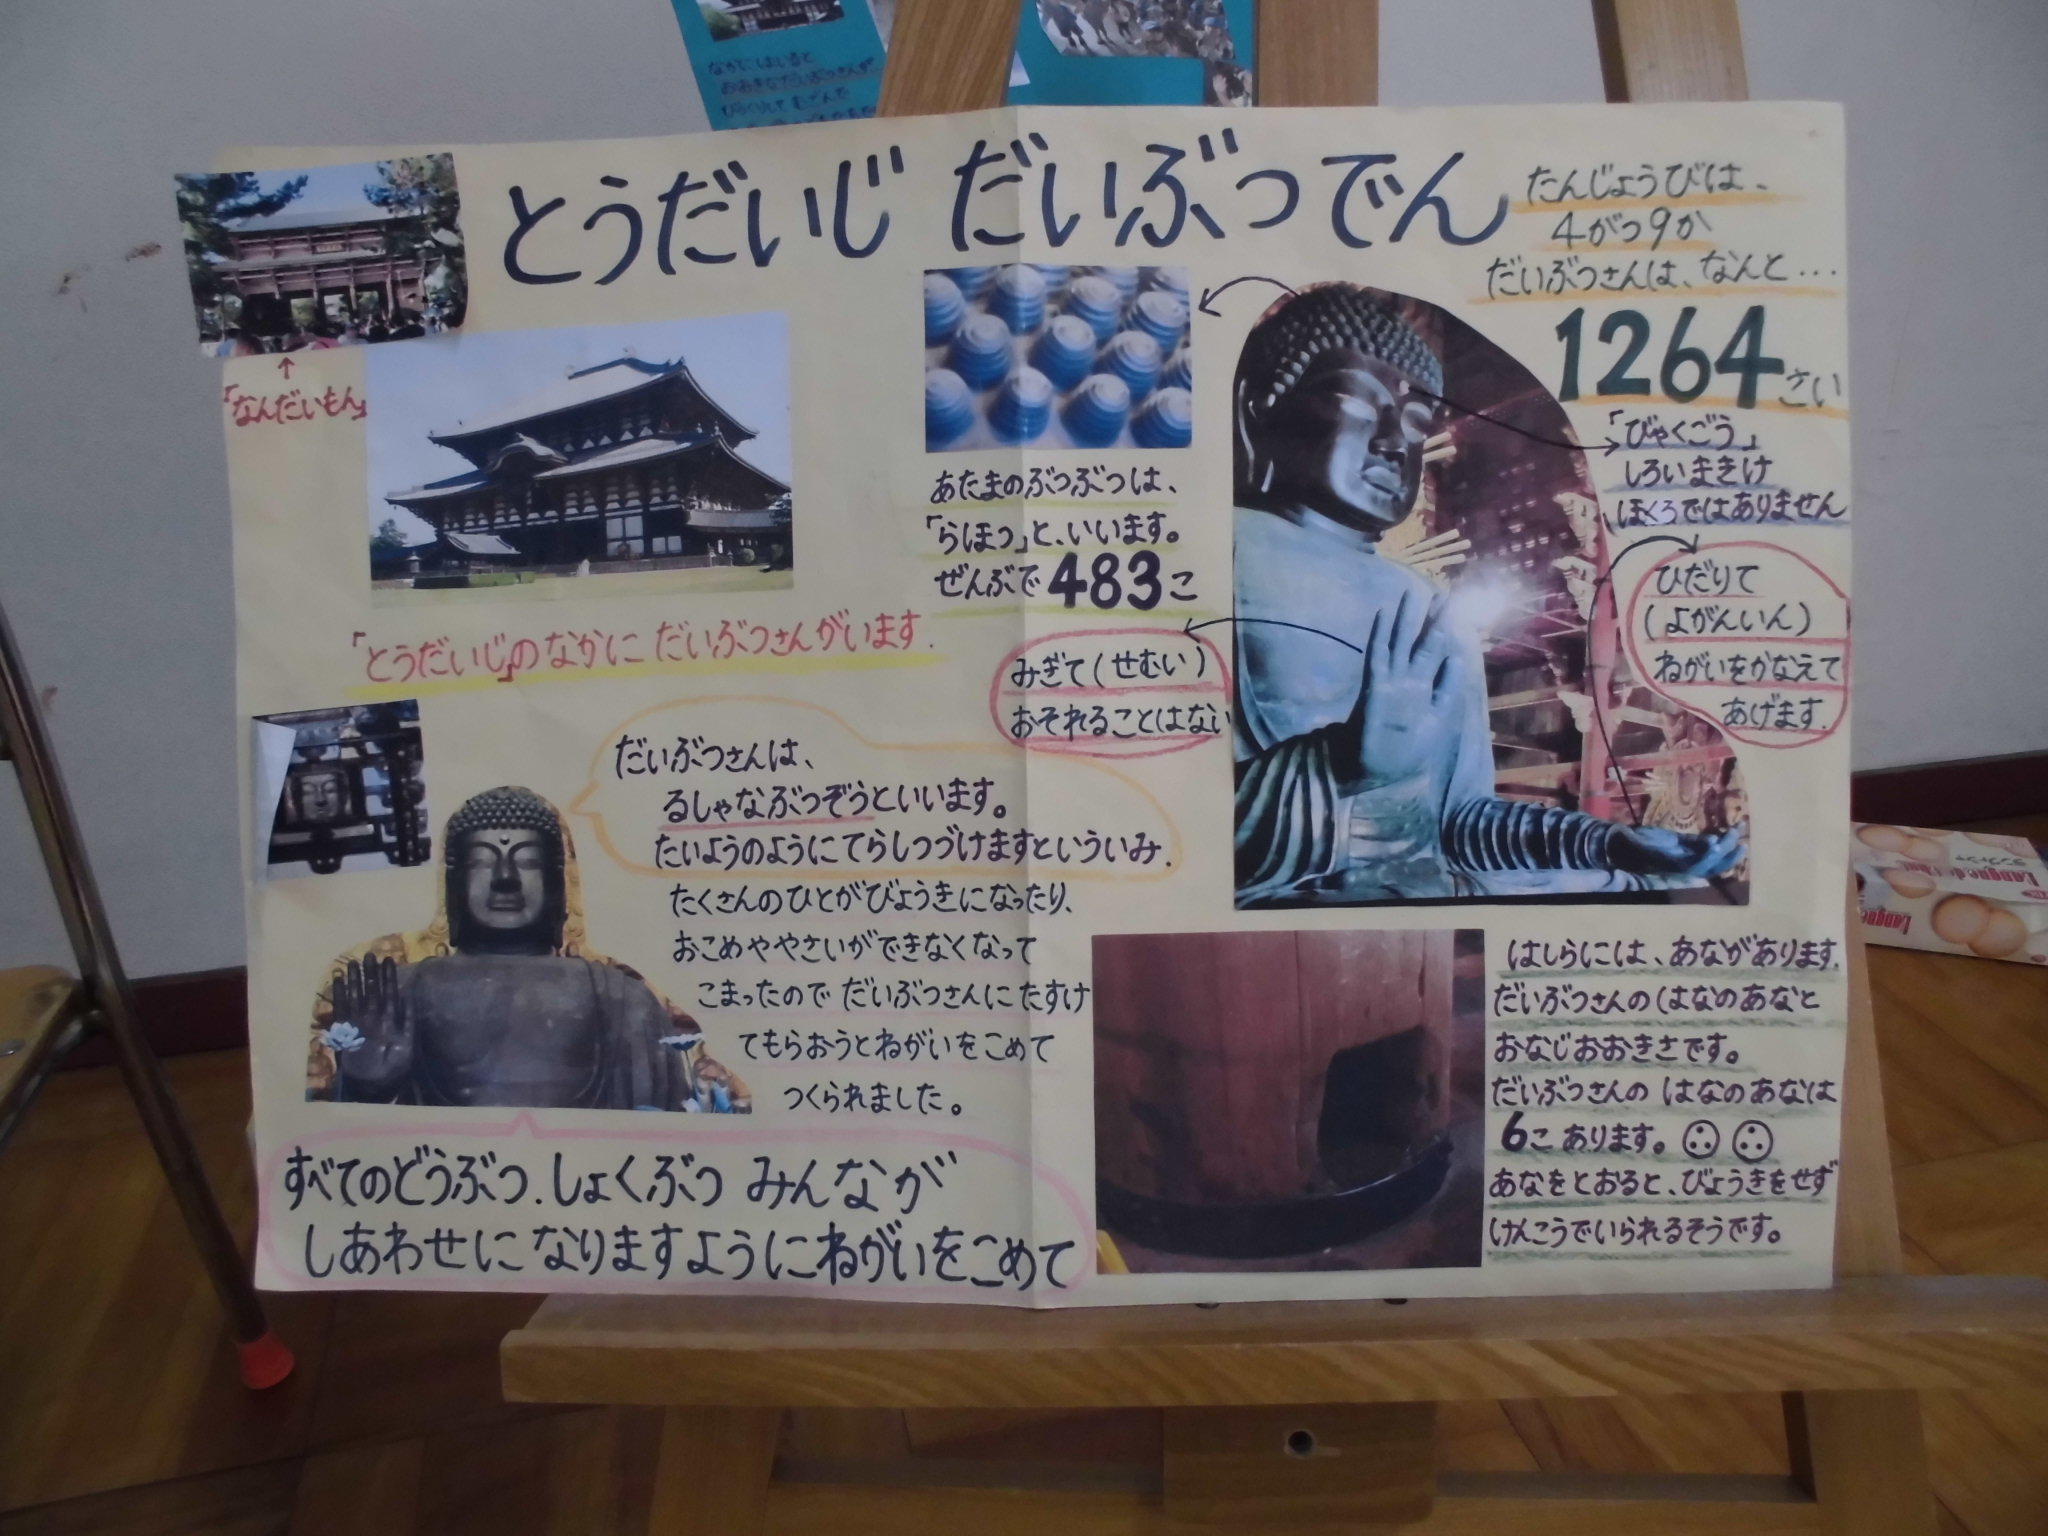 なかに はいると
とうだいじ だいぶつでん
たんじょうびは、
4がつ9か
だいぶつさんは、なんと...
1264さい
「なんだいもん」
「とうだいじ」のなかに だいぶつさんがいます.
あたまのぶつぶつは、
「らほつ」と、いいます。
ぜんぶで 483こ
「びゃくごう」
しろいまきけ
ほくろではありません
みぎて(せむい)
おそれることはない
ひだりて
(よがんいん)
ねがいをかなえて
あげます.
だいぶつさんは、
るしゃなぶつぞうといいます。
たいようのようにてらしつづけますといういみ.
たくさんのひとがびょうきになったり、
おこめややさいができなくなって
こまったので だいぶつさんに たすけ
てもらおうとねがいをこめて
つくられました。
すべてのどうぶつ.しょくぶつ みんなが
しあわせに なりますようにねがいをこめて
はしらには、あながあります.
だいぶつさんの はなのあなと
おなじおおきさです。
だいぶつさんの はなのあなは
6こ あります。
あなをとおると、びょうきをせず
けんこうでいられるそうです。